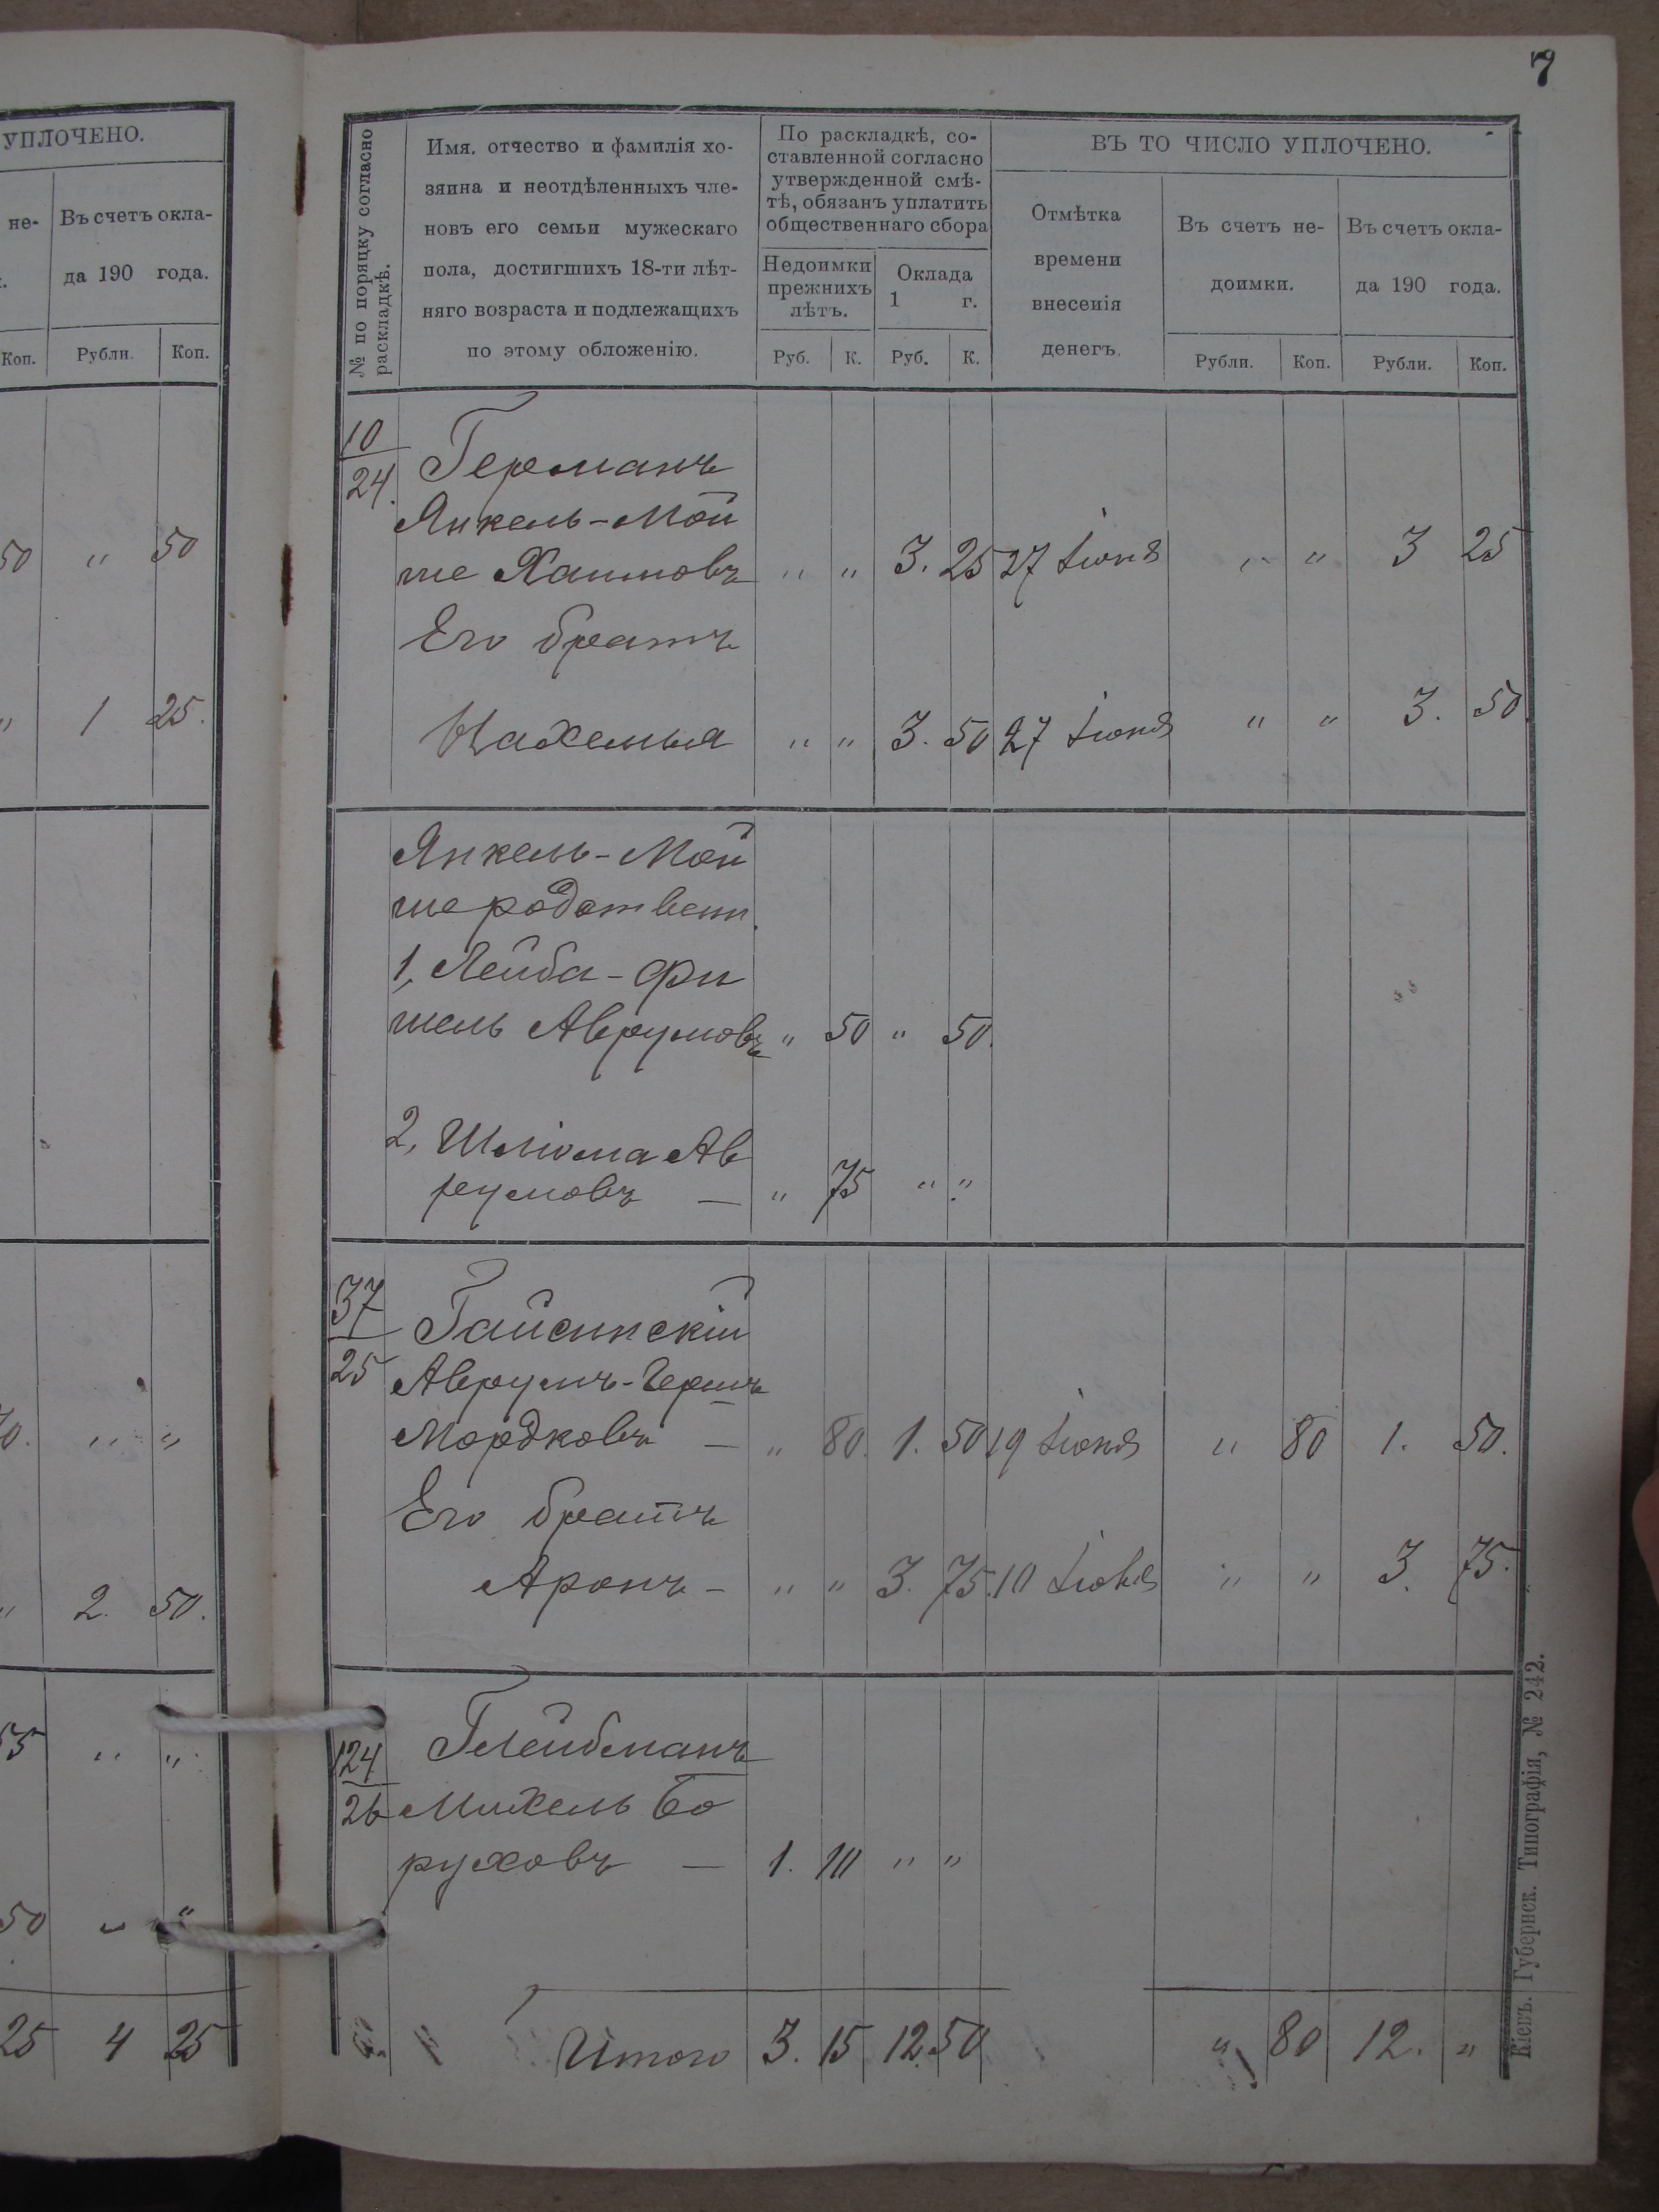 7
УПЛОЧЕНО.
не- Въ счетъ окла-
да 190 года.
Коп. Рубли. Коп.
50 " 50
" 1 25.
" "
" 2. 50.
" "
50 " "
25 4 25
№ по поряцку согласно
раскладкѣ.
Имя. отчество и фамилія хо-
зяина и неотдѣленныхъ чле-
новъ его семьи мужескаго
пола, достигшихъ 18-ти лѣт-
няго возраста и подлежащихъ
по этому обложенію.
По раскладкѣ, со-
ставленной согласно
утвержденной смѣ-
тѣ, обязанъ уплатить
общественнаго сбора
Недоимки
прежнихъ
лѣтъ.
Оклада
1 г.
Руб. К. Руб. К.
ВЪ ТО ЧИСЛО УПЛОЧЕНО.
Отмѣтка
времени
внесенія
денегъ.
Въ счетъ не-
доимки.
Въ счетъ окла-
да 190 года.
Рубли. Коп. Рубли. Коп.
10
24. Германъ
Янкель-Мой
ше Хаимовъ " " 3. 25 27 Іюня " " 3 25
Его братъ
Нахемья " " 3. 50 27 Іюня " " 3. 50
Янкель-Мой
ше родствен.
1, Лейба-Фи
шель Аврумовъ " 50 " 50.
2, Шліома Ав
румовъ — " 75 " "
37
25 Гайсинскій
Аврумъ-Гершъ
Мордковъ — " 80. 1. 50 19 Іюня " 80 1. 50.
Его братъ
Аронъ — " " 3. 75. 10 Іюля " " 3. 75.
124
26 Глейбманъ
Михель Бо
руховъ — 1. 10 " "
Итого 3. 15 12. 50 " 80 12. "
Кіевъ. Губернск. Типографія, № 242.